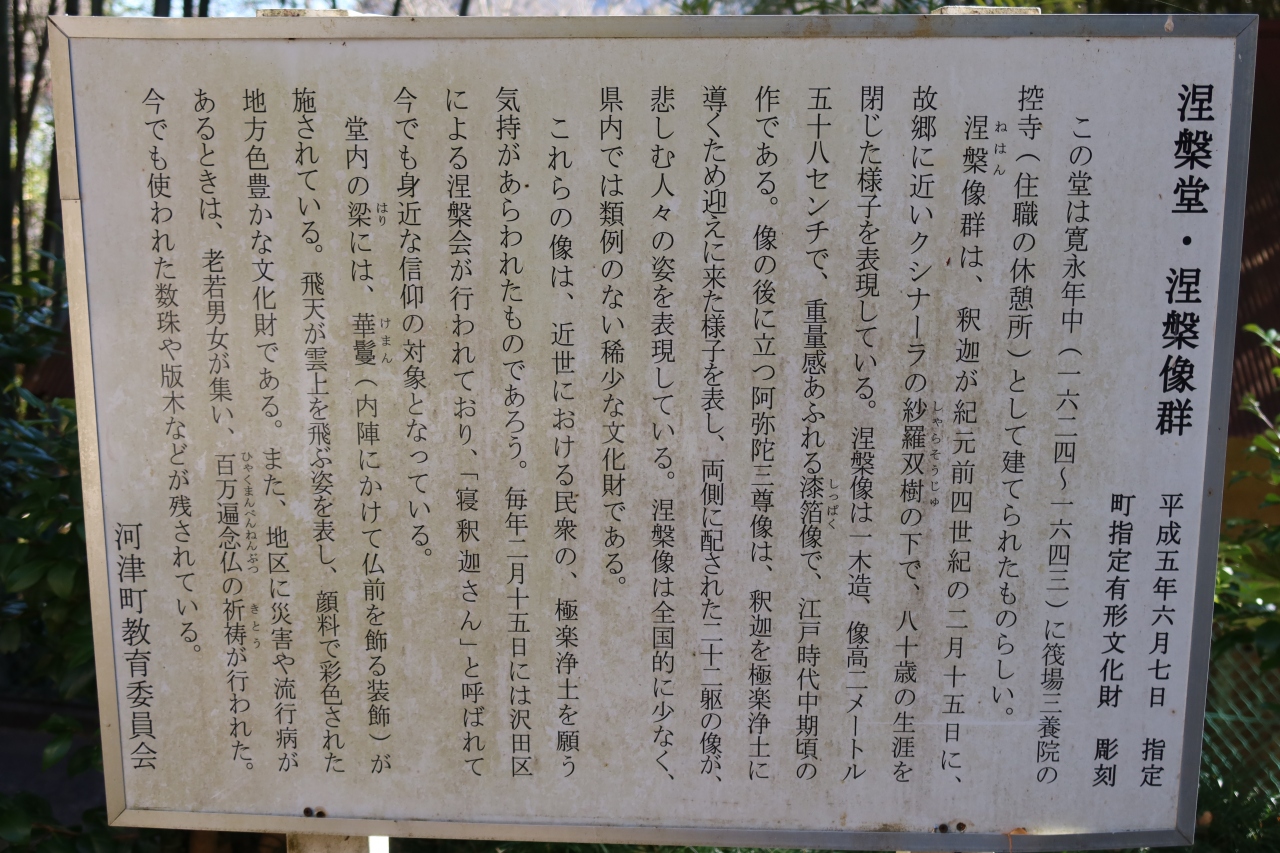 涅槃堂・涅槃像群
平成五年六月七日　指定
町指定有形文化財　彫刻
この堂は寛永年中（一六二四～一六四三）に筏場三養院の
控寺（住職の休憩所）として建てられたものらしい。
涅槃像群は、釈迦が紀元前四世紀の二月十五日に、
ねはん
故郷に近いクシナーラの紗羅双樹の下で、八十歳の生涯を
しゃらそうじゅ
閉じた様子を表現している。涅槃像は一木造、像高二メートル
五十八センチで、重量感あふれる漆箔像で、江戸時代中期頃の
しっぱく
作である。像の後に立つ阿弥陀三尊像は、釈迦を極楽浄土に
導くため迎えに来た様子を表し、両側に配された二十二躯の像が、
悲しむ人々の姿を表現している。涅槃像は全国的に少なく、
県内では類例のない稀少な文化財である。
これらの像は、近世における民衆の、極楽浄土を願う
気持があらわれたものであろう。毎年二月十五日には沢田区
による涅槃会が行われており、「寝釈迦さん」と呼ばれて
今でも身近な信仰の対象となっている。
堂内の梁には、華鬘（内陣にかけて仏前を飾る装飾）が
はり　けまん
施されている。飛天が雲上を飛ぶ姿を表し、顔料で彩色された
地方色豊かな文化財である。また、地区に災害や流行病が
あるときは、老若男女が集い、百万遍念仏の祈祷が行われた。
ひゃくまんべんねんぶつ　きとう
今でも使われた数珠や版木などが残されている。
河津町教育委員会